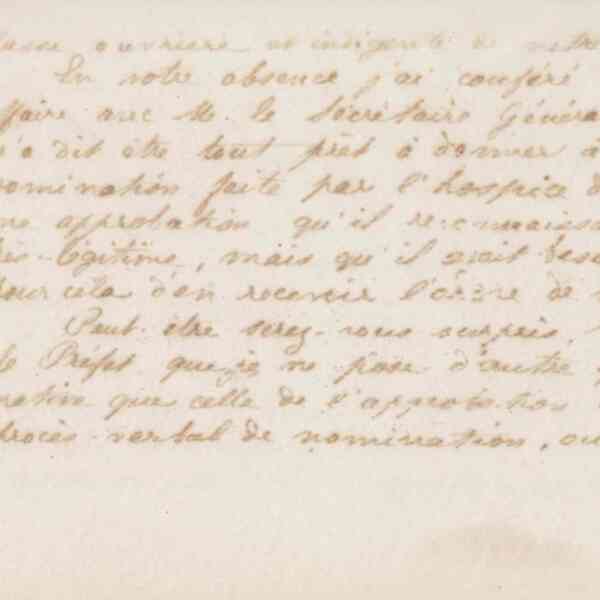 lasse ouvriere et indigente de notre
En votre absence j'ai conféré
ffaire avec M. le Sécrétaire Généra
'a dit être tout prêt à donner à
nomination faite par l'hospice d
ne approbation qu'il reconnaiss
ès-légitime, mais qu'il avait beso
our cela d'en recevoir l'ordre de
Peut-être serez-vous surpris,
le Préfet que je ne pose d'autre
native que celle de l'approbation
procès-verbal de nomination, ou